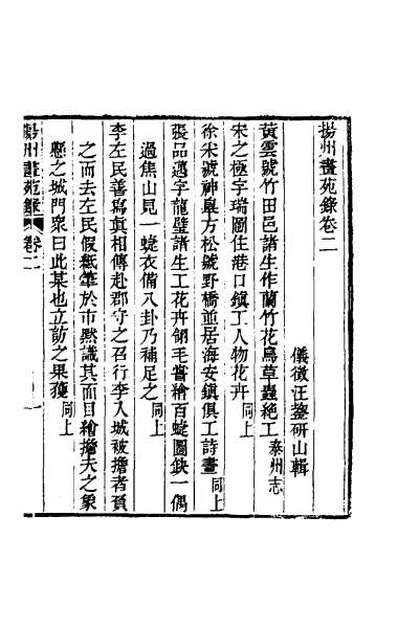 揚州畫苑錄卷二
儀徵汪鋆硏山輯
黃雲號竹田邑諸生作蘭竹花鳥草蟲絶工泰州志
宋之極字瑞圖住港口鎭工人物花卉同上
徐來號神臯方松號野橋並居海安鎭俱工詩畫同上
張品邁字龍壁諸生工花卉翎毛嘗繪百蜨圖鈌一偶
過焦山見一蜨衣備八卦乃補足之同上
李左民善寫眞相傳赴郡守之召行李入城被擔者負
之而去左民假紙筆於市默識其面目繪擔夫之象
懸之城門衆曰此某也立訪之果獲同上
揚州畫苑錄
卷二